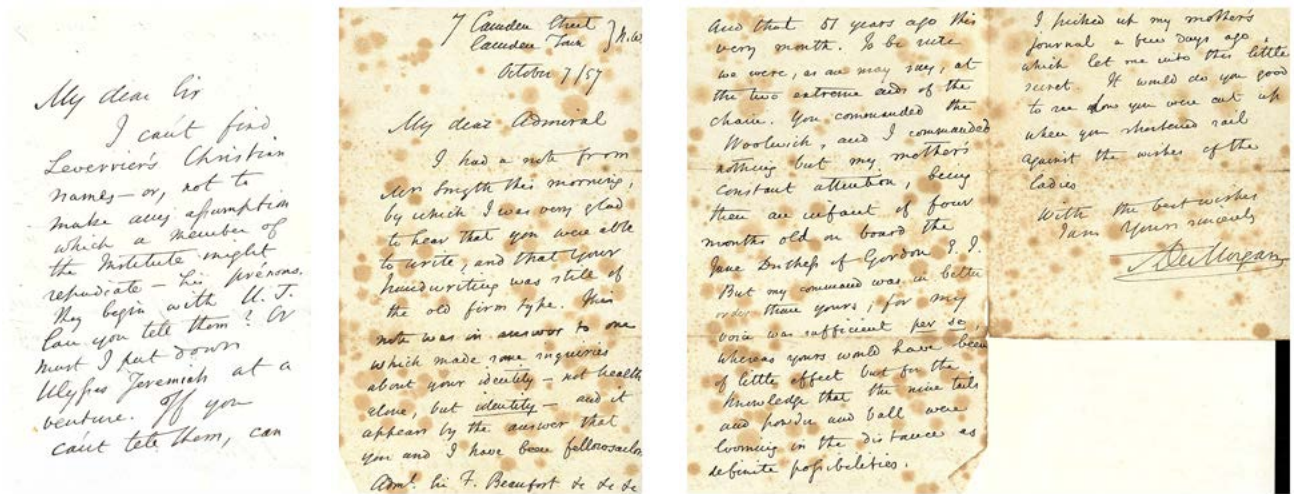 My dear Sir
I can't find
Leverrier's Christian
names – or, not to
make any assumption
which a member of
the Institute might
repudiate – his prénoms.
They begin with U. J.
Can you tell them? Or
must I put down
Ulysses Jeremiah at a
venture. If you
can't tell them, can
7 Camden Street
Camden Town } N.W.
October 7/57
My dear Admiral
I had a note from
Mrs Smyth this morning,
by which I was very glad
to hear that you were able
to write, and that your
handwriting was still of
the old firm type. This
note was in answer to one
which made some inquiries
about your identity – not health
alone, but identity – and it
appears by the answer that
you and I have been fellow sailors
Adml. Sir F. Beaufort &c &c &c
And that 51 years ago this
very month. To be sure
we were, as one may say, at
the two extreme ends of the
chain. You commanded the
Woolwich, and I commanded
nothing but my mother's
constant attention, being
then an infant of four
months old on board the
Jane Duchess of Gordon E. I.
But my command was in better
order than yours; for my
voice was sufficient per se,
whereas yours would have been
of little effect but for the
knowledge that the nine tails
and powder and ball were
looming in the distance as
definite possibilities.
I picked up my mother's
journal a few days ago,
which let me into this little
secret. It would do you good
to see how you were cut up
when you shortened sail
against the wishes of the
ladies
With the best wishes
I am Yours sincerely
A De Morgan